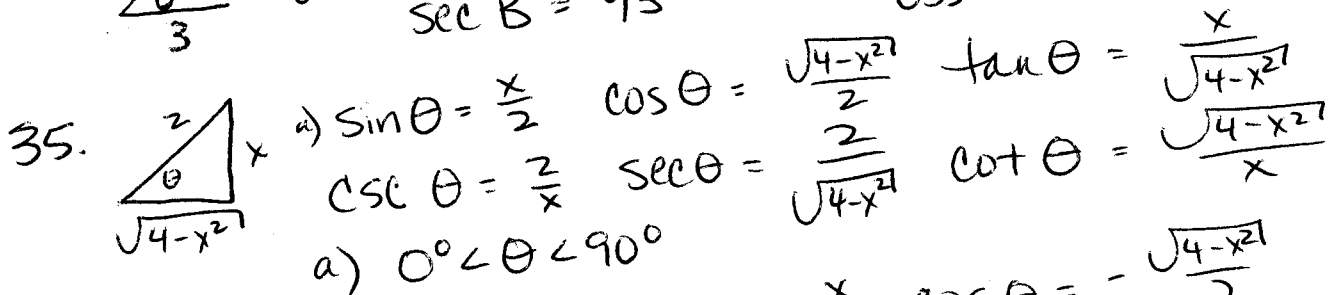 3 sec B =
35. 2 x θ √4-x² a) sin θ = x/2 cos θ = √4-x²/2 tan θ = x/√4-x²
csc θ = 2/x sec θ = 2/√4-x² cot θ = √4-x²/x
a) 0° < θ < 90°
= - √4-x²